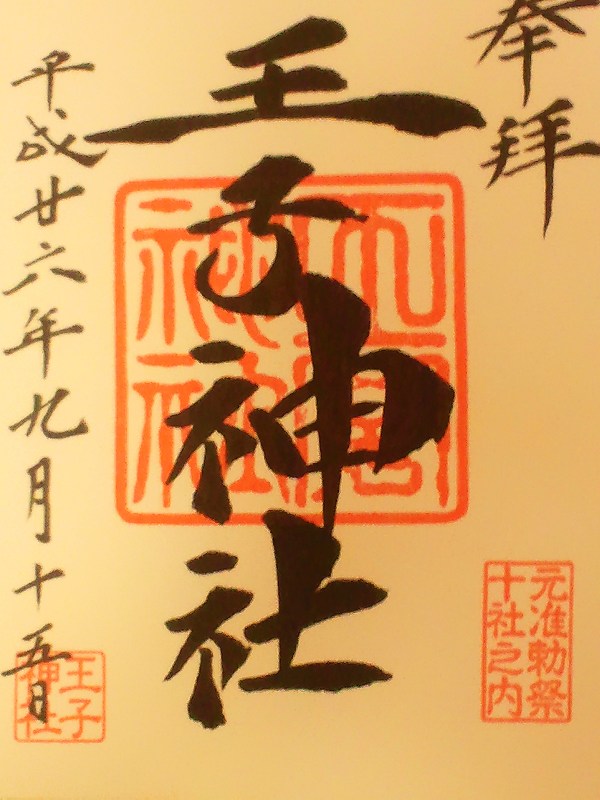 奉拝
元准勅祭
十社之内
王子神社
平成廿六年九月十五日
王子
神社